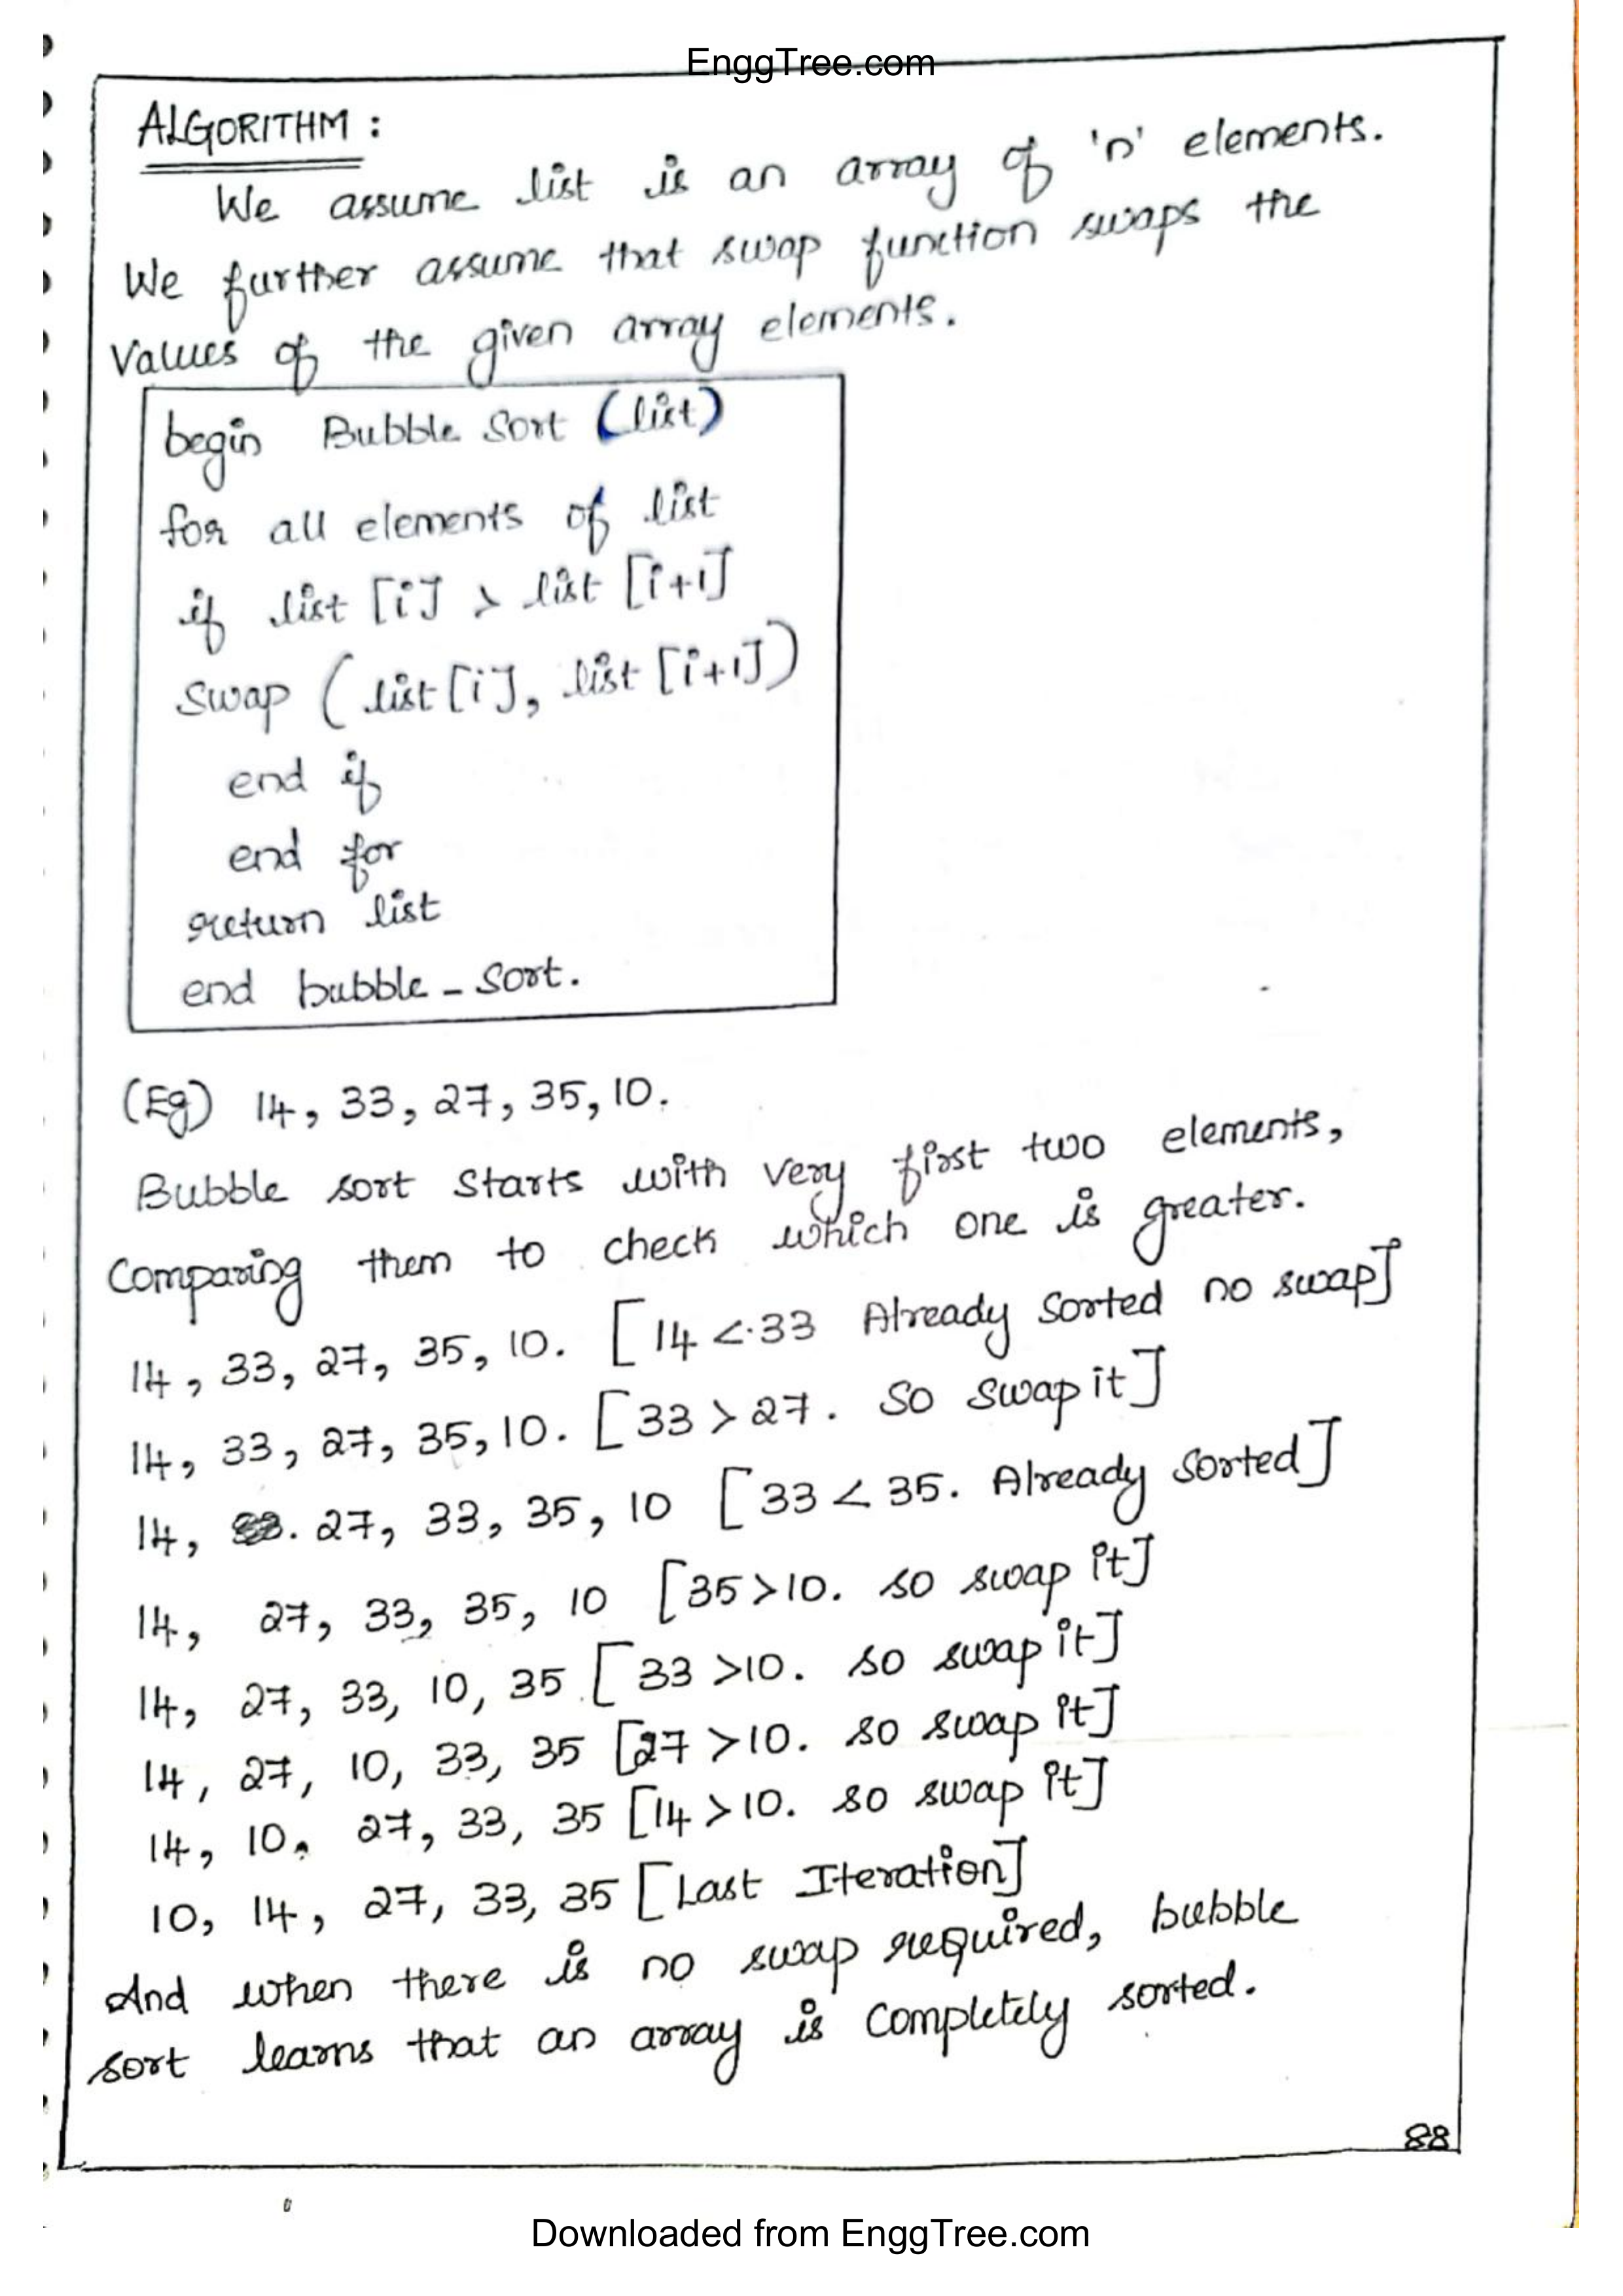 EnggTree.com
ALGORITHM :
We assume list is an array of 'n' elements.
We further assume that swap function swaps the
values of the given array elements.
begin Bubble Sort (list)
for all elements of list
if list [i] > list [i+1]
Swap (list[i], list [i+1])
end if
end for
return list
end bubble - Sort.
(Eg) 14, 33, 27, 35, 10.
Bubble sort Starts with very first two elements,
Comparing them to check which one is greater.
14, 33, 27, 35, 10. [14 < 33 Already Sorted no swap]
14, 33, 27, 35, 10. [33 > 27. SO Swap it]
14, 27, 33, 35, 10 [33 < 35. Already Sorted]
14, 27, 33, 35, 10 [35 > 10. so swap it]
14, 27, 33, 10, 35 [33 > 10. so swap it]
14, 27, 10, 33, 35 [27 > 10. so swap it]
14, 10, 27, 33, 35 [14 > 10. so swap it]
10, 14, 27, 33, 35 [Last Iteration]
And when there is no swap required, bubble
sort learns that an array is completely sorted.
88
Downloaded from EnggTree.com